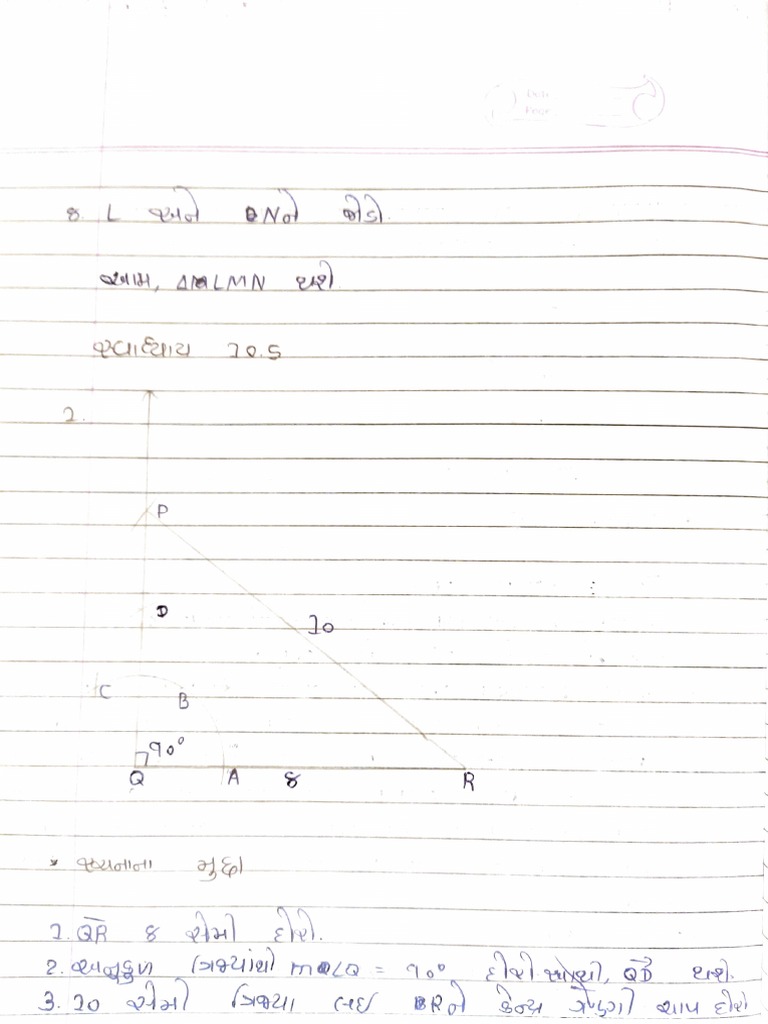 Date
Page
૪. L અને Nને જોડો.
આમ, ΔLMN થશે.
સ્વાધ્યાય 10.5
1.
P
D
10
C
B
90°
Q A 8 R
* રચનાના મુદ્દા
1. QR 8 સેમી દોરો.
2. અનુકુળ ત્રિજ્યાથી m∠Q = 90° દોરો QD થશે.
3. 10 સેમી ત્રિજ્યા લઇ Rને કેન્દ્ર ચાપ દોરો